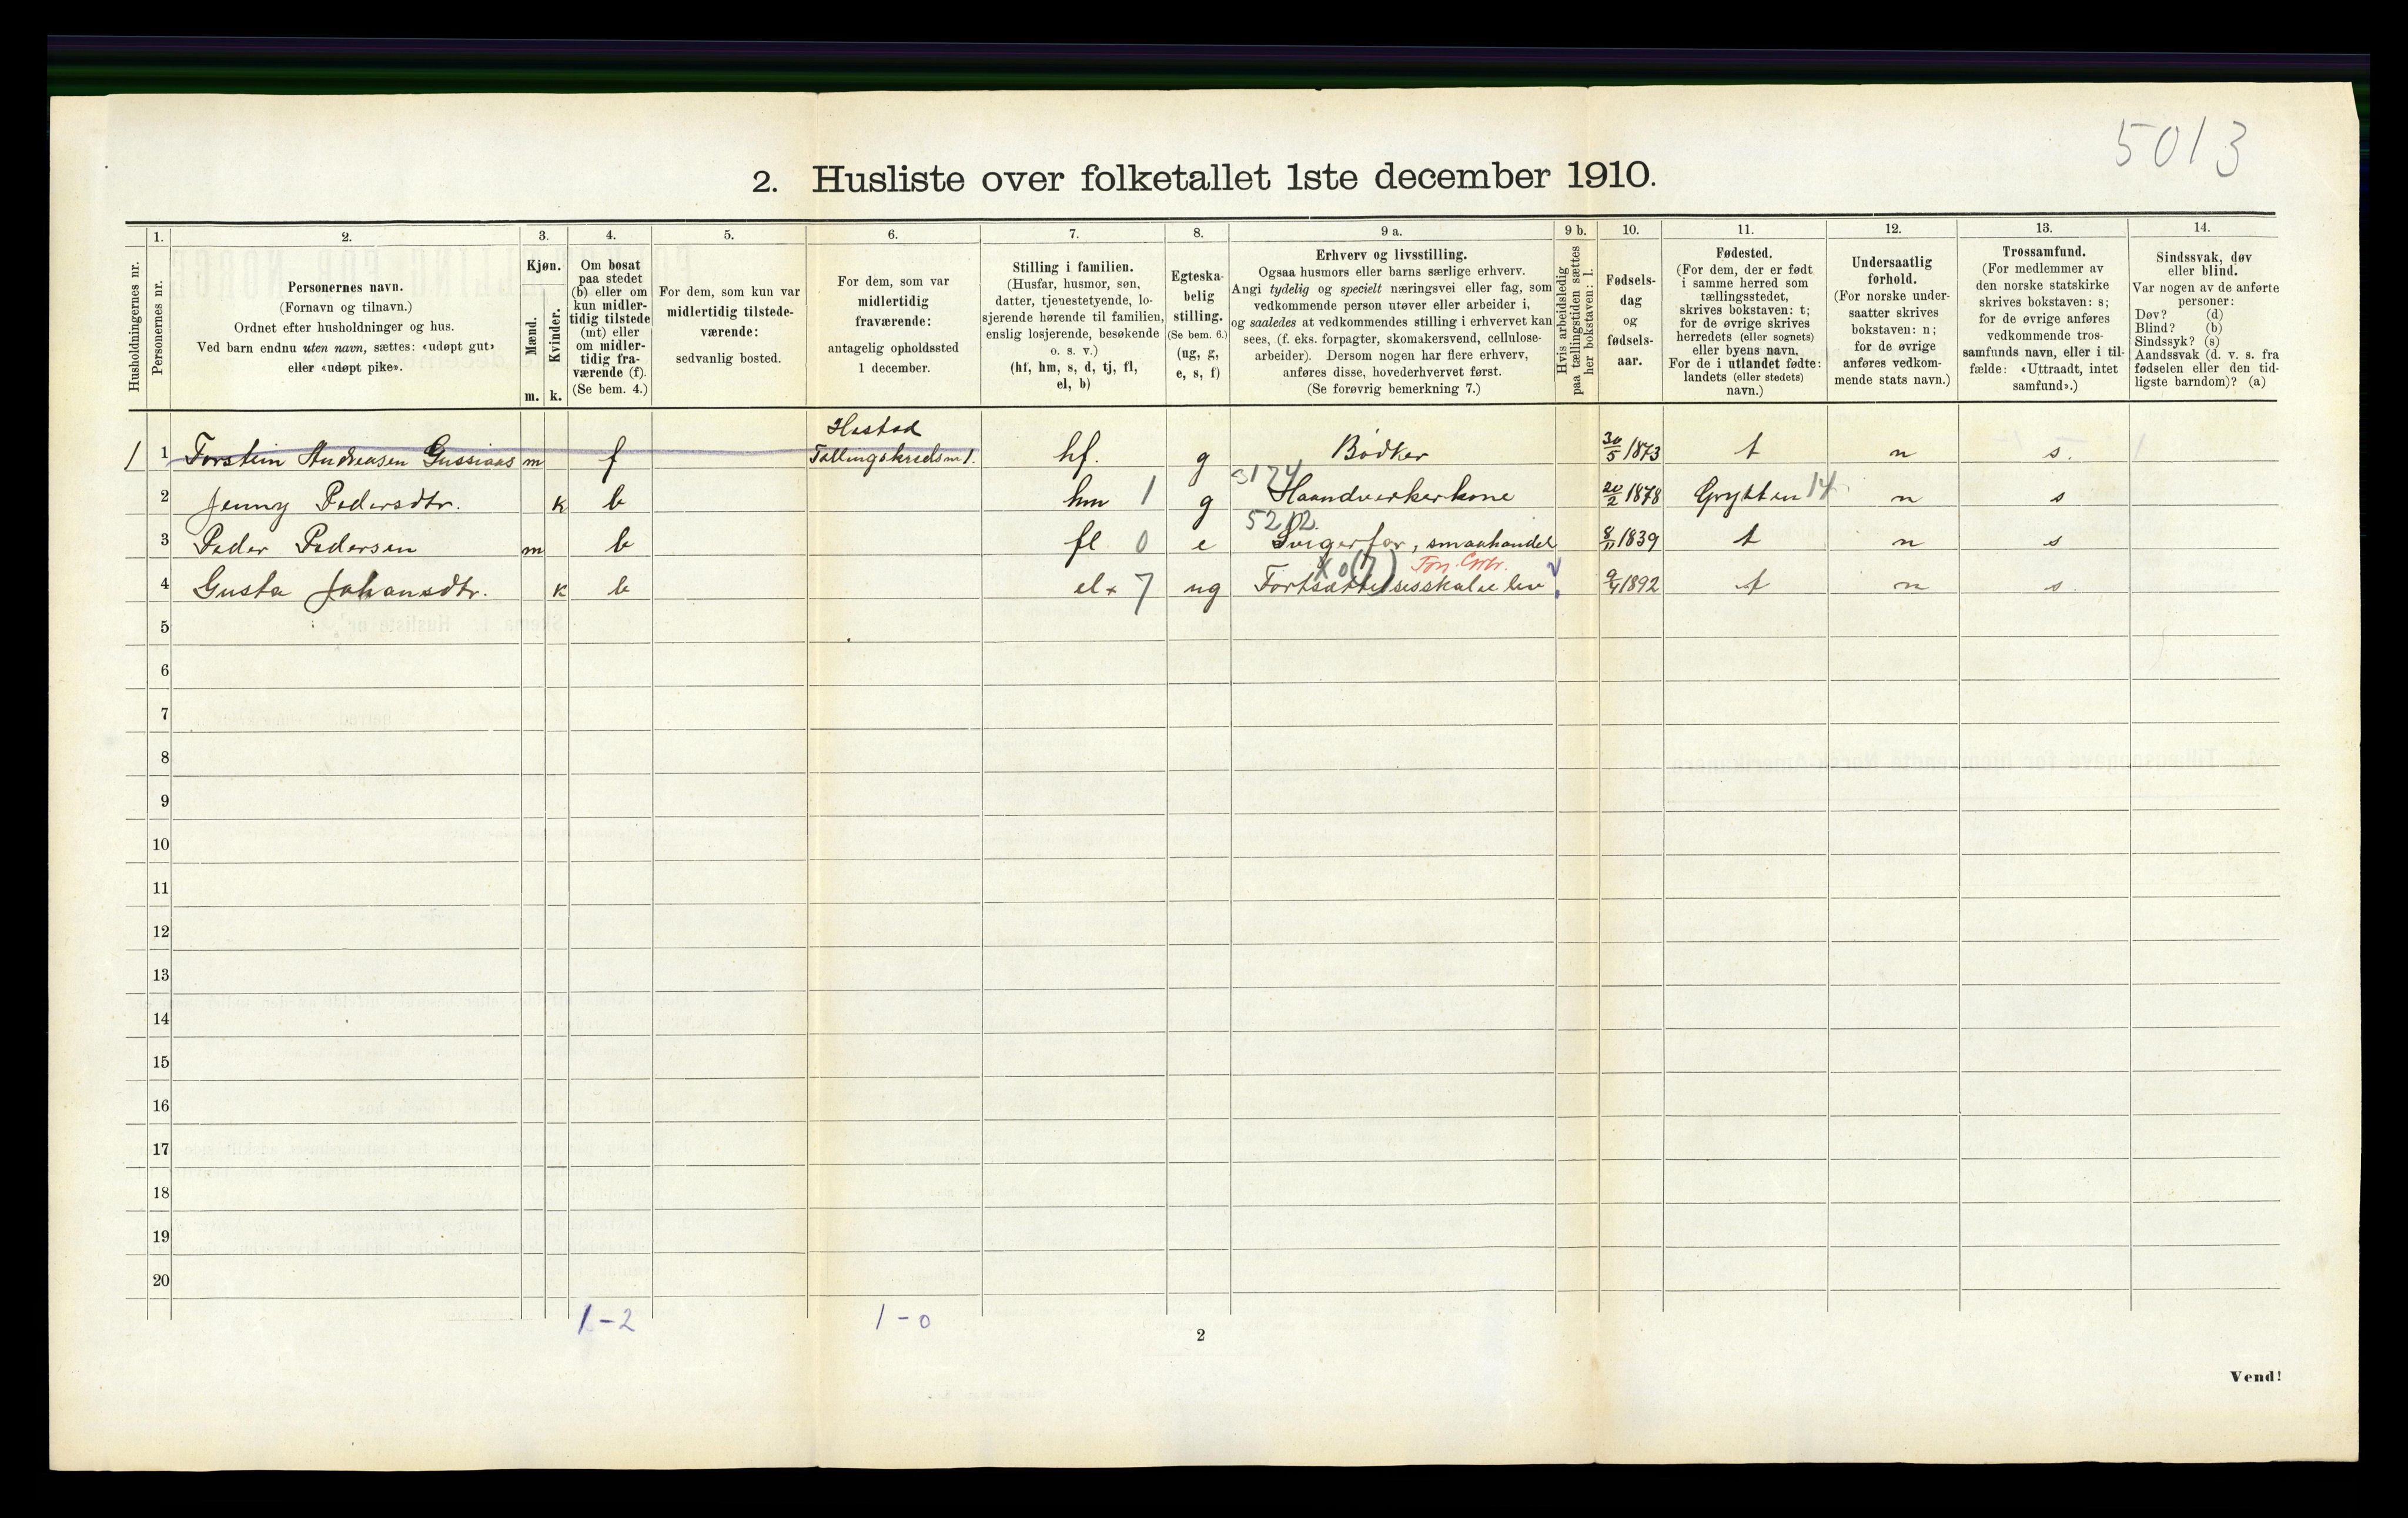 5013
2. Husliste over folketallet 1ste december 1910.
Husholdningernes nr.
1.
Personernes nr.
2.
Personernes navn.
(Fornavn og tilnavn.)
Ordnet efter husholdninger og hus.
Ved barn endnu uten navn, sættes: «udøpt gut»
eller «udøpt pike».
3.
Kjøn.
Mænd.
Kvinder.
m. k.
4.
Om bosat
paa stedet
(b) eller om
kun midler-
tidig tilstede
(mt) eller
om midler-
tidig fra-
værende (f).
(Se bem. 4.)
5.
For dem, som kun var
midlertidig tilstede-
værende:
sedvanlig bosted.
6.
For dem, som var
midlertidig
fraværende:
antagelig opholdssted
1 december.
7.
Stilling i familien.
(Husfar, husmor, søn,
datter, tjenestetyende, lo-
sjerende hørende til familien,
enslig losjerende, besøkende
o. s. v.)
(hf, hm, s, d, tj, fl,
el, b)
8.
Egteska-
belig
stilling.
(Se bem. 6.)
(ug, g,
e, s, f)
9 a.
Erhverv og livsstilling.
Ogsaa husmors eller barns særlige erhverv.
Angi tydelig og specielt næringsvei eller fag, som
vedkommende person utøver eller arbeider i,
og saaledes at vedkommendes stilling i erhvervet kan
sees, (f. eks. forpagter, skomakersvend, cellulose-
arbeider). Dersom nogen har flere erhverv,
anføres disse, hovederhvervet først.
(Se forøvrig bemerkning 7.)
9 b.
Hvis arbeidsledig
paa tællingstiden sættes
her bokstaven: l.
10.
Fødsels-
dag
og
fødsels-
aar.
11.
Fødested.
(For dem, der er født
i samme herred som
tællingsstedet,
skrives bokstaven: t;
for de øvrige skrives
herredets (eller sognets)
eller byens navn.
For de i utlandet fødte:
landets (eller stedets)
navn.)
12.
Undersaatlig
forhold.
(For norske under-
saatter skrives
bokstaven: n;
for de øvrige
anføres vedkom-
mende stats navn.)
13.
Trossamfund.
(For medlemmer av
den norske statskirke
skrives bokstaven: s;
for de øvrige anføres
vedkommende tros-
samfunds navn, eller i til-
fælde: «Uttraadt, intet
samfund».)
14.
Sindssvak, døv
eller blind.
Var nogen av de anførte
personer:
Døv? (d)
Blind? (b)
Sindssyk? (s)
Aandssvak (d. v. s. fra
fødselen eller den tid-
ligste barndom)? (a)
Hestad
1 1 Torstein Andreasen Gussiaas m f Tællingskreds nr 1. hf. g Bødker 30/5 1873 t n s.
5174
2 Jenny Pedersdtr. k b hm 1 g Haandverkerkone 20/2 1878 Grytten 14 n s
52 12.
3 Peder Pedersen m b fl 0 e Svigerfar, smaahandel 8/11 1839 t n s
X 0 (7)
4 Gusta Johansdtr. k b el x 7 ug Fortsættelsesskoleelev 9/4 1892 t n s.
5
6
7
8
9
10
11
12
13
14
15
16
17
18
19
20
1 - 2 1 - 0
2
Vend!